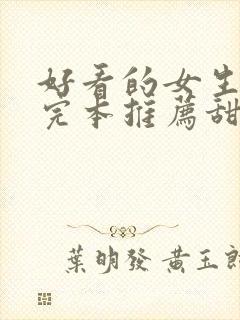 好看的女生
完本推薦甜
葉明發 黄玉郎